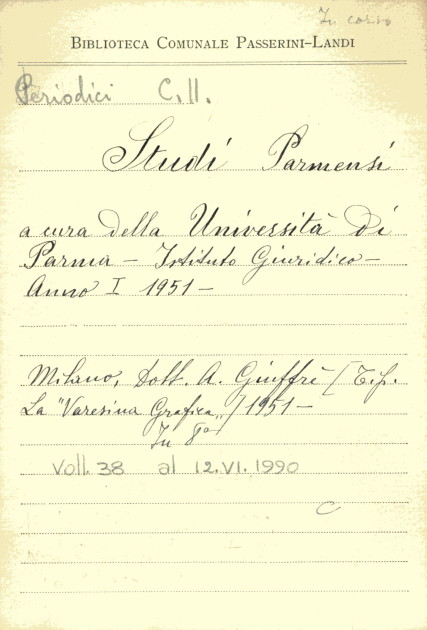 In corso
BIBLIOTECA COMUNALE PASSERINI-LANDI
Periodici C.II.
Studi Parmensi
a cura della Università di
Parma - Istituto Giuridico -
Anno I 1951 -
Milano, Dott. A. Giuffrè [Tip.
La "Varesina Grafica„] 1951 -
In 8°
Voll. 38 al 12.VI.1990
C